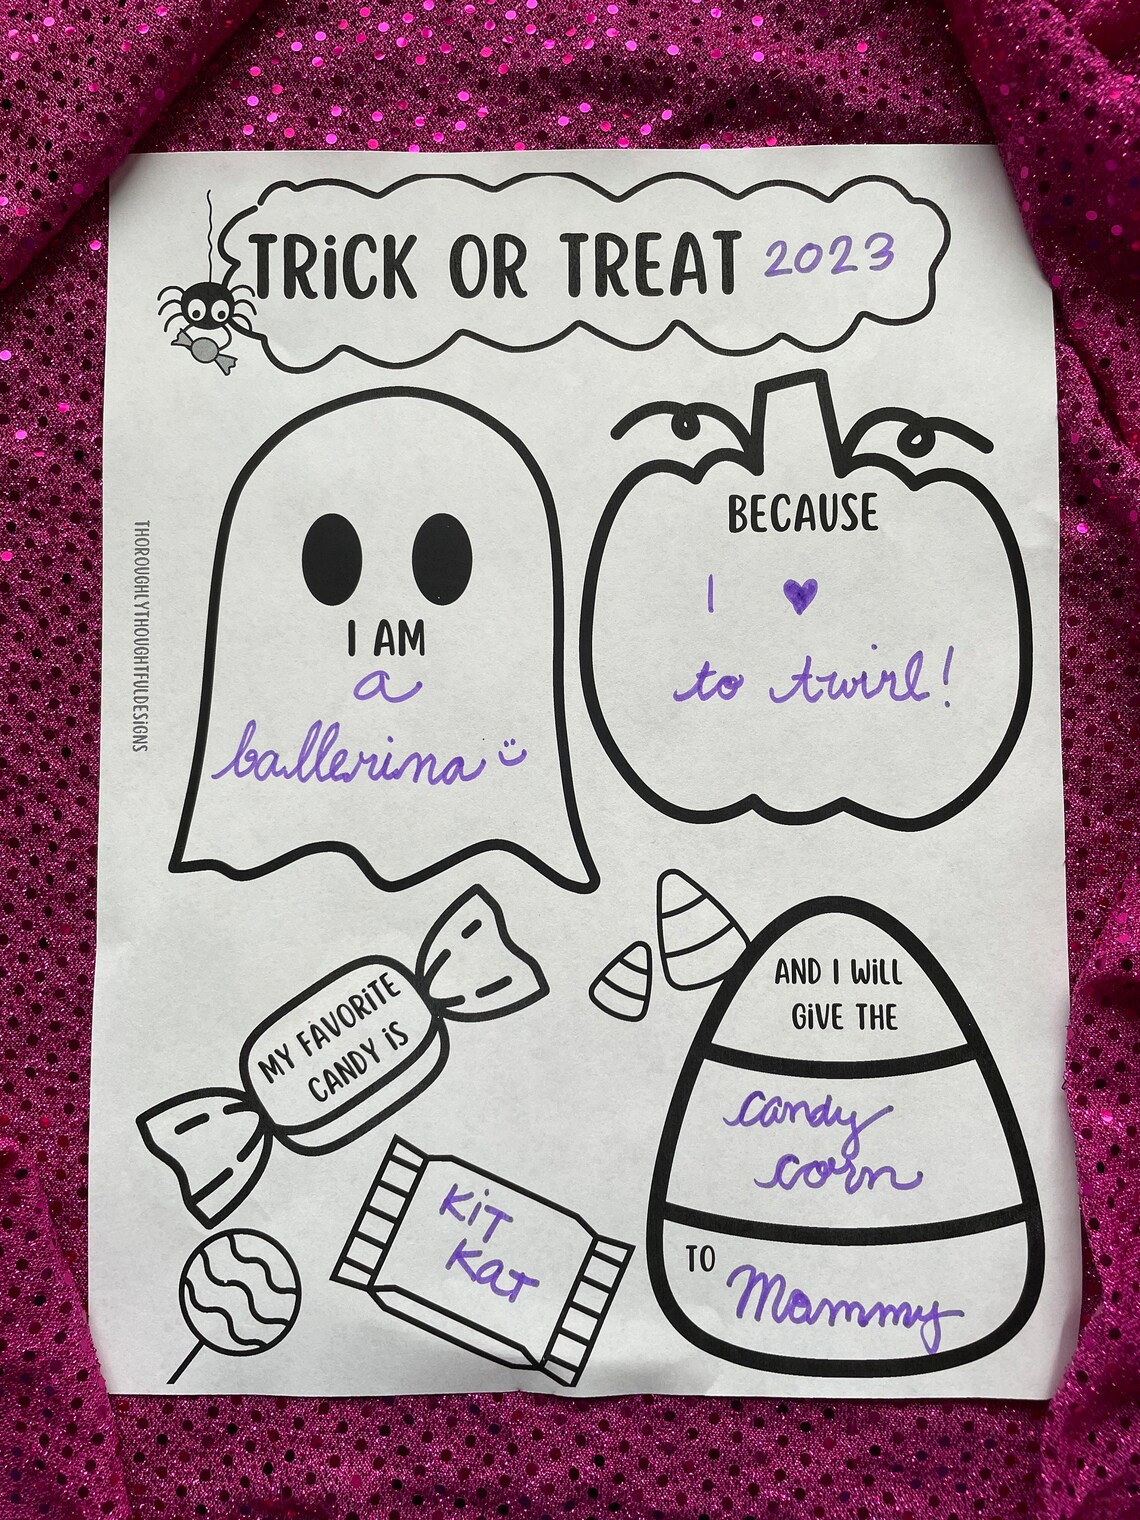 TRiCK OR TREAT 2023
I AM
a
ballerina
BECAUSE
I ♥
to twirl!
THOROUGHLYTHOUGHTFULDESiGNS
MY FAVORiTE
CANDY iS
KiT
KaT
AND I WiLL
GiVE THE
candy
corn
TO Mommy